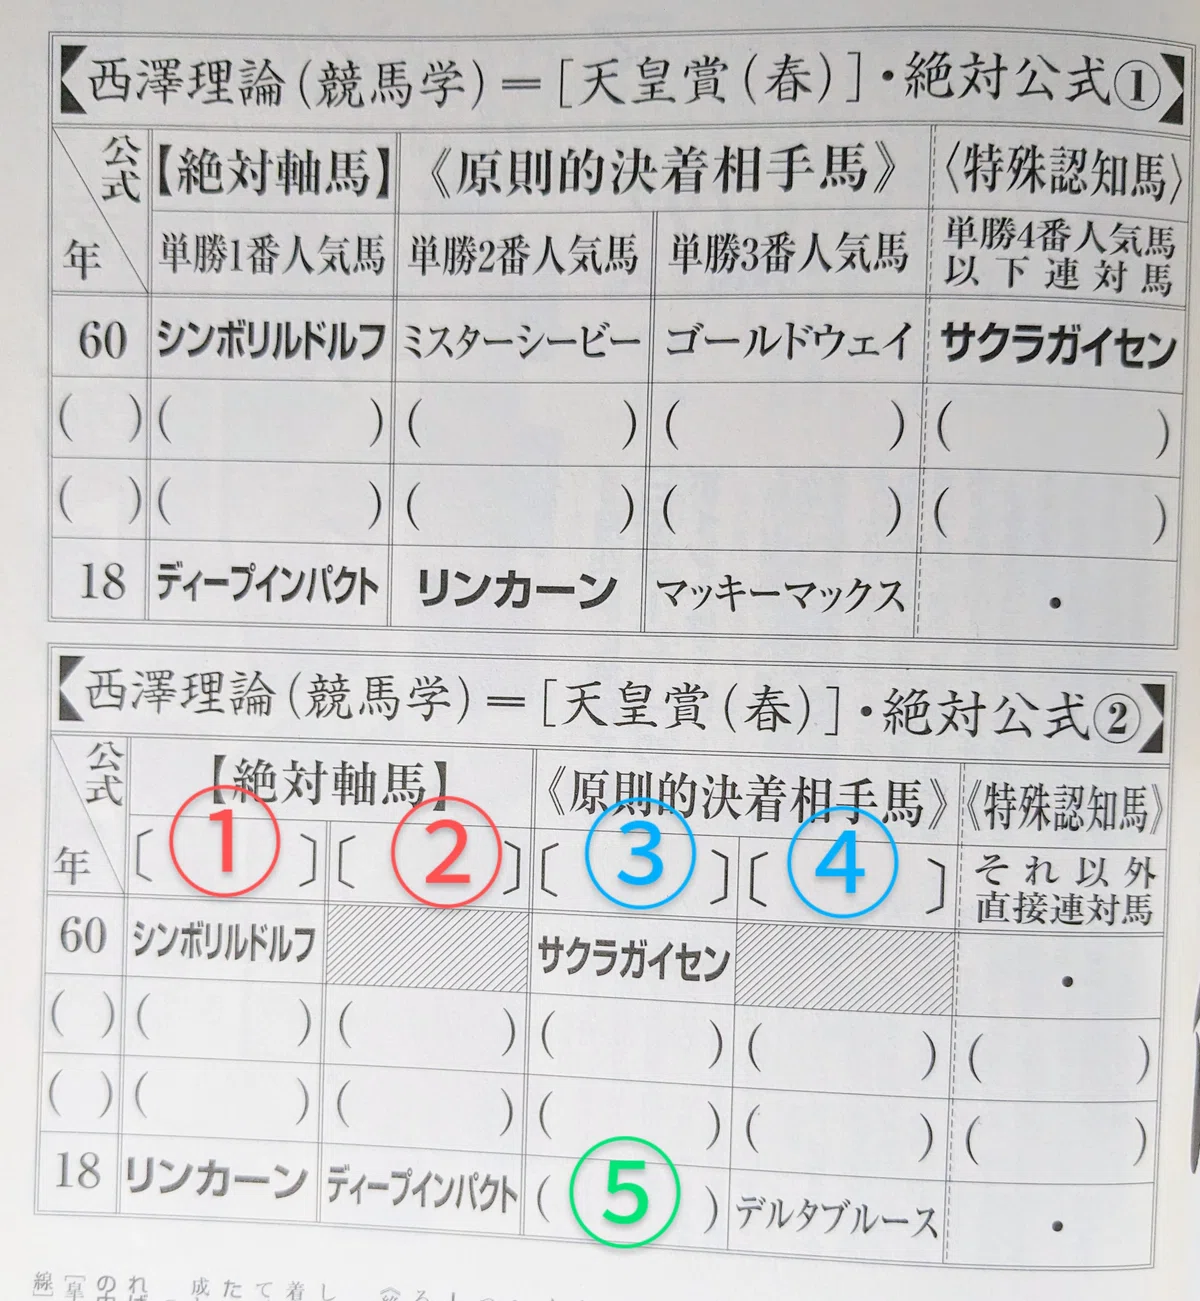 西澤理論(競馬学)=[天皇賞(春)]・絶対公式①
公式 【絶対軸馬】 《原則的決着相手馬》 〈特殊認知馬〉
年 単勝1番人気馬 単勝2番人気馬 単勝3番人気馬 単勝4番人気馬以下連対馬
60 シンボリルドルフ ミスターシービー ゴールドウェイ サクラガイセン
( ) ( ) ( ) ( ) ( )
( ) ( ) ( ) ( ) ( )
18 ディープインパクト リンカーン マッキーマックス ・
西澤理論(競馬学)=[天皇賞(春)]・絶対公式②
公式 【絶対軸馬】 《原則的決着相手馬》 《特殊認知馬》
年 〔①〕 〔②〕 〔③〕 〔④〕 それ以外直接連対馬
60 シンボリルドルフ サクラガイセン ・
( ) ( ) ( ) ( ) ( ) ( )
( ) ( ) ( ) ( ) ( ) ( )
18 リンカーン ディープインパクト (⑤) デルタブルース ・